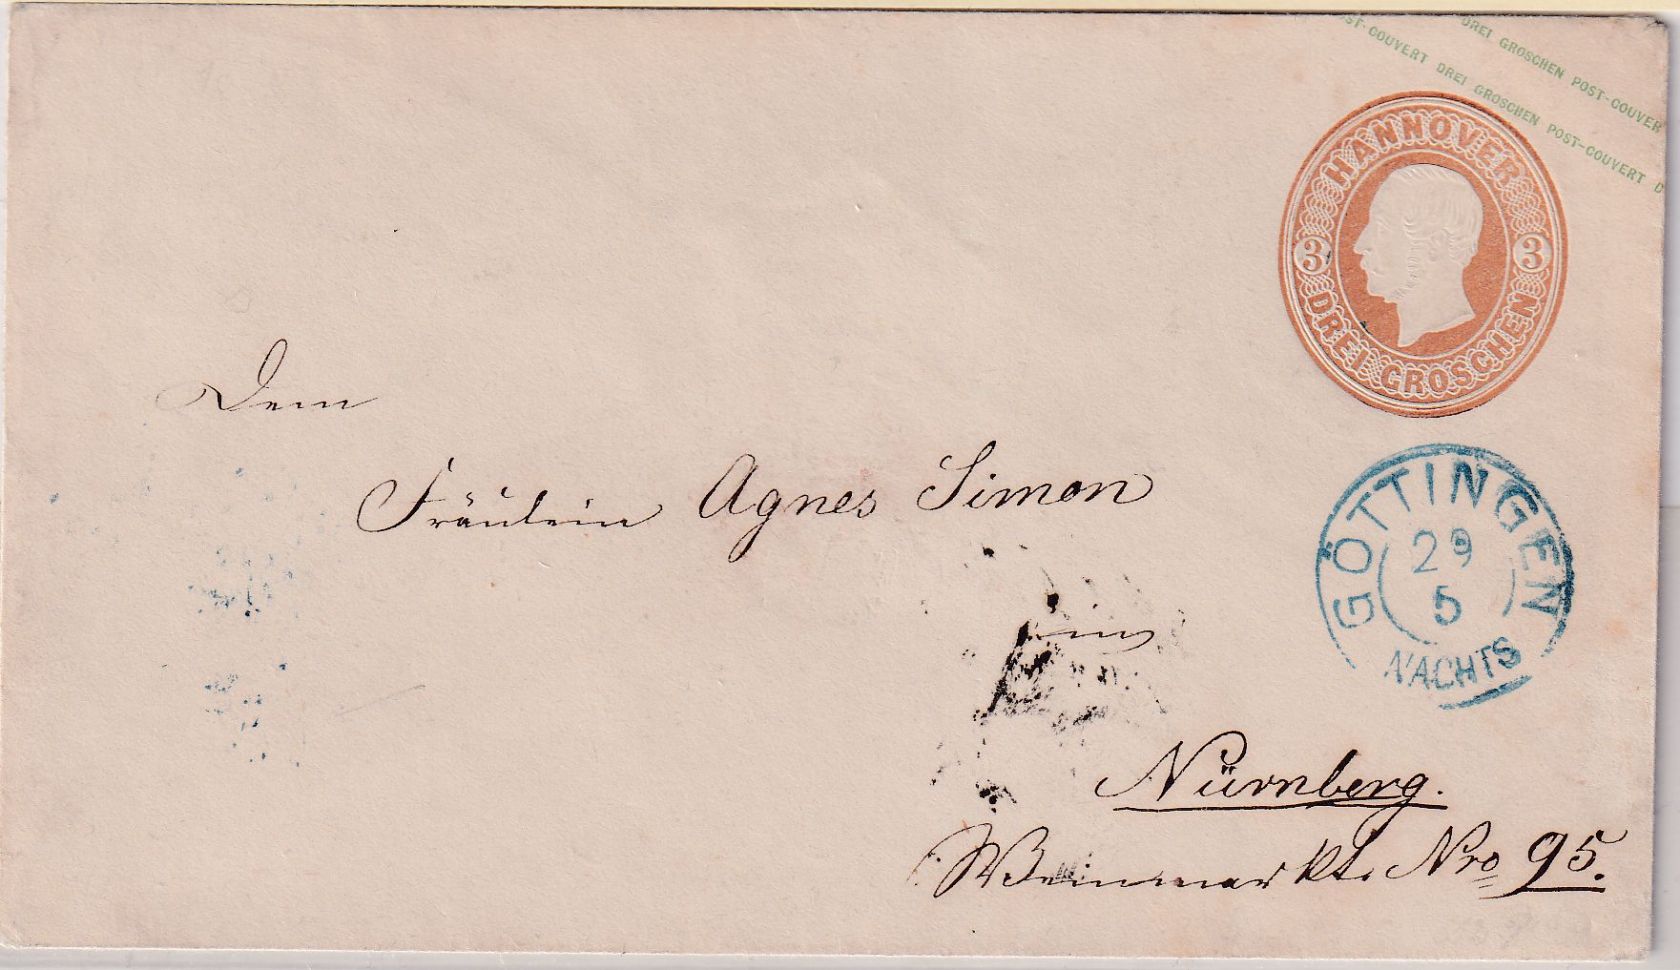 DREI GROSCHEN POST-COUVER
ST-COUVERT DREI GROSCHEN POST-COUVERT D
HANNOVER
3 3
DREI GROSCHEN
Dem
Fräulein Agnes Simon
GÖTTINGEN
29
5
NACHTS
in
Nürnberg.
Weinmarkt. Nro 95.